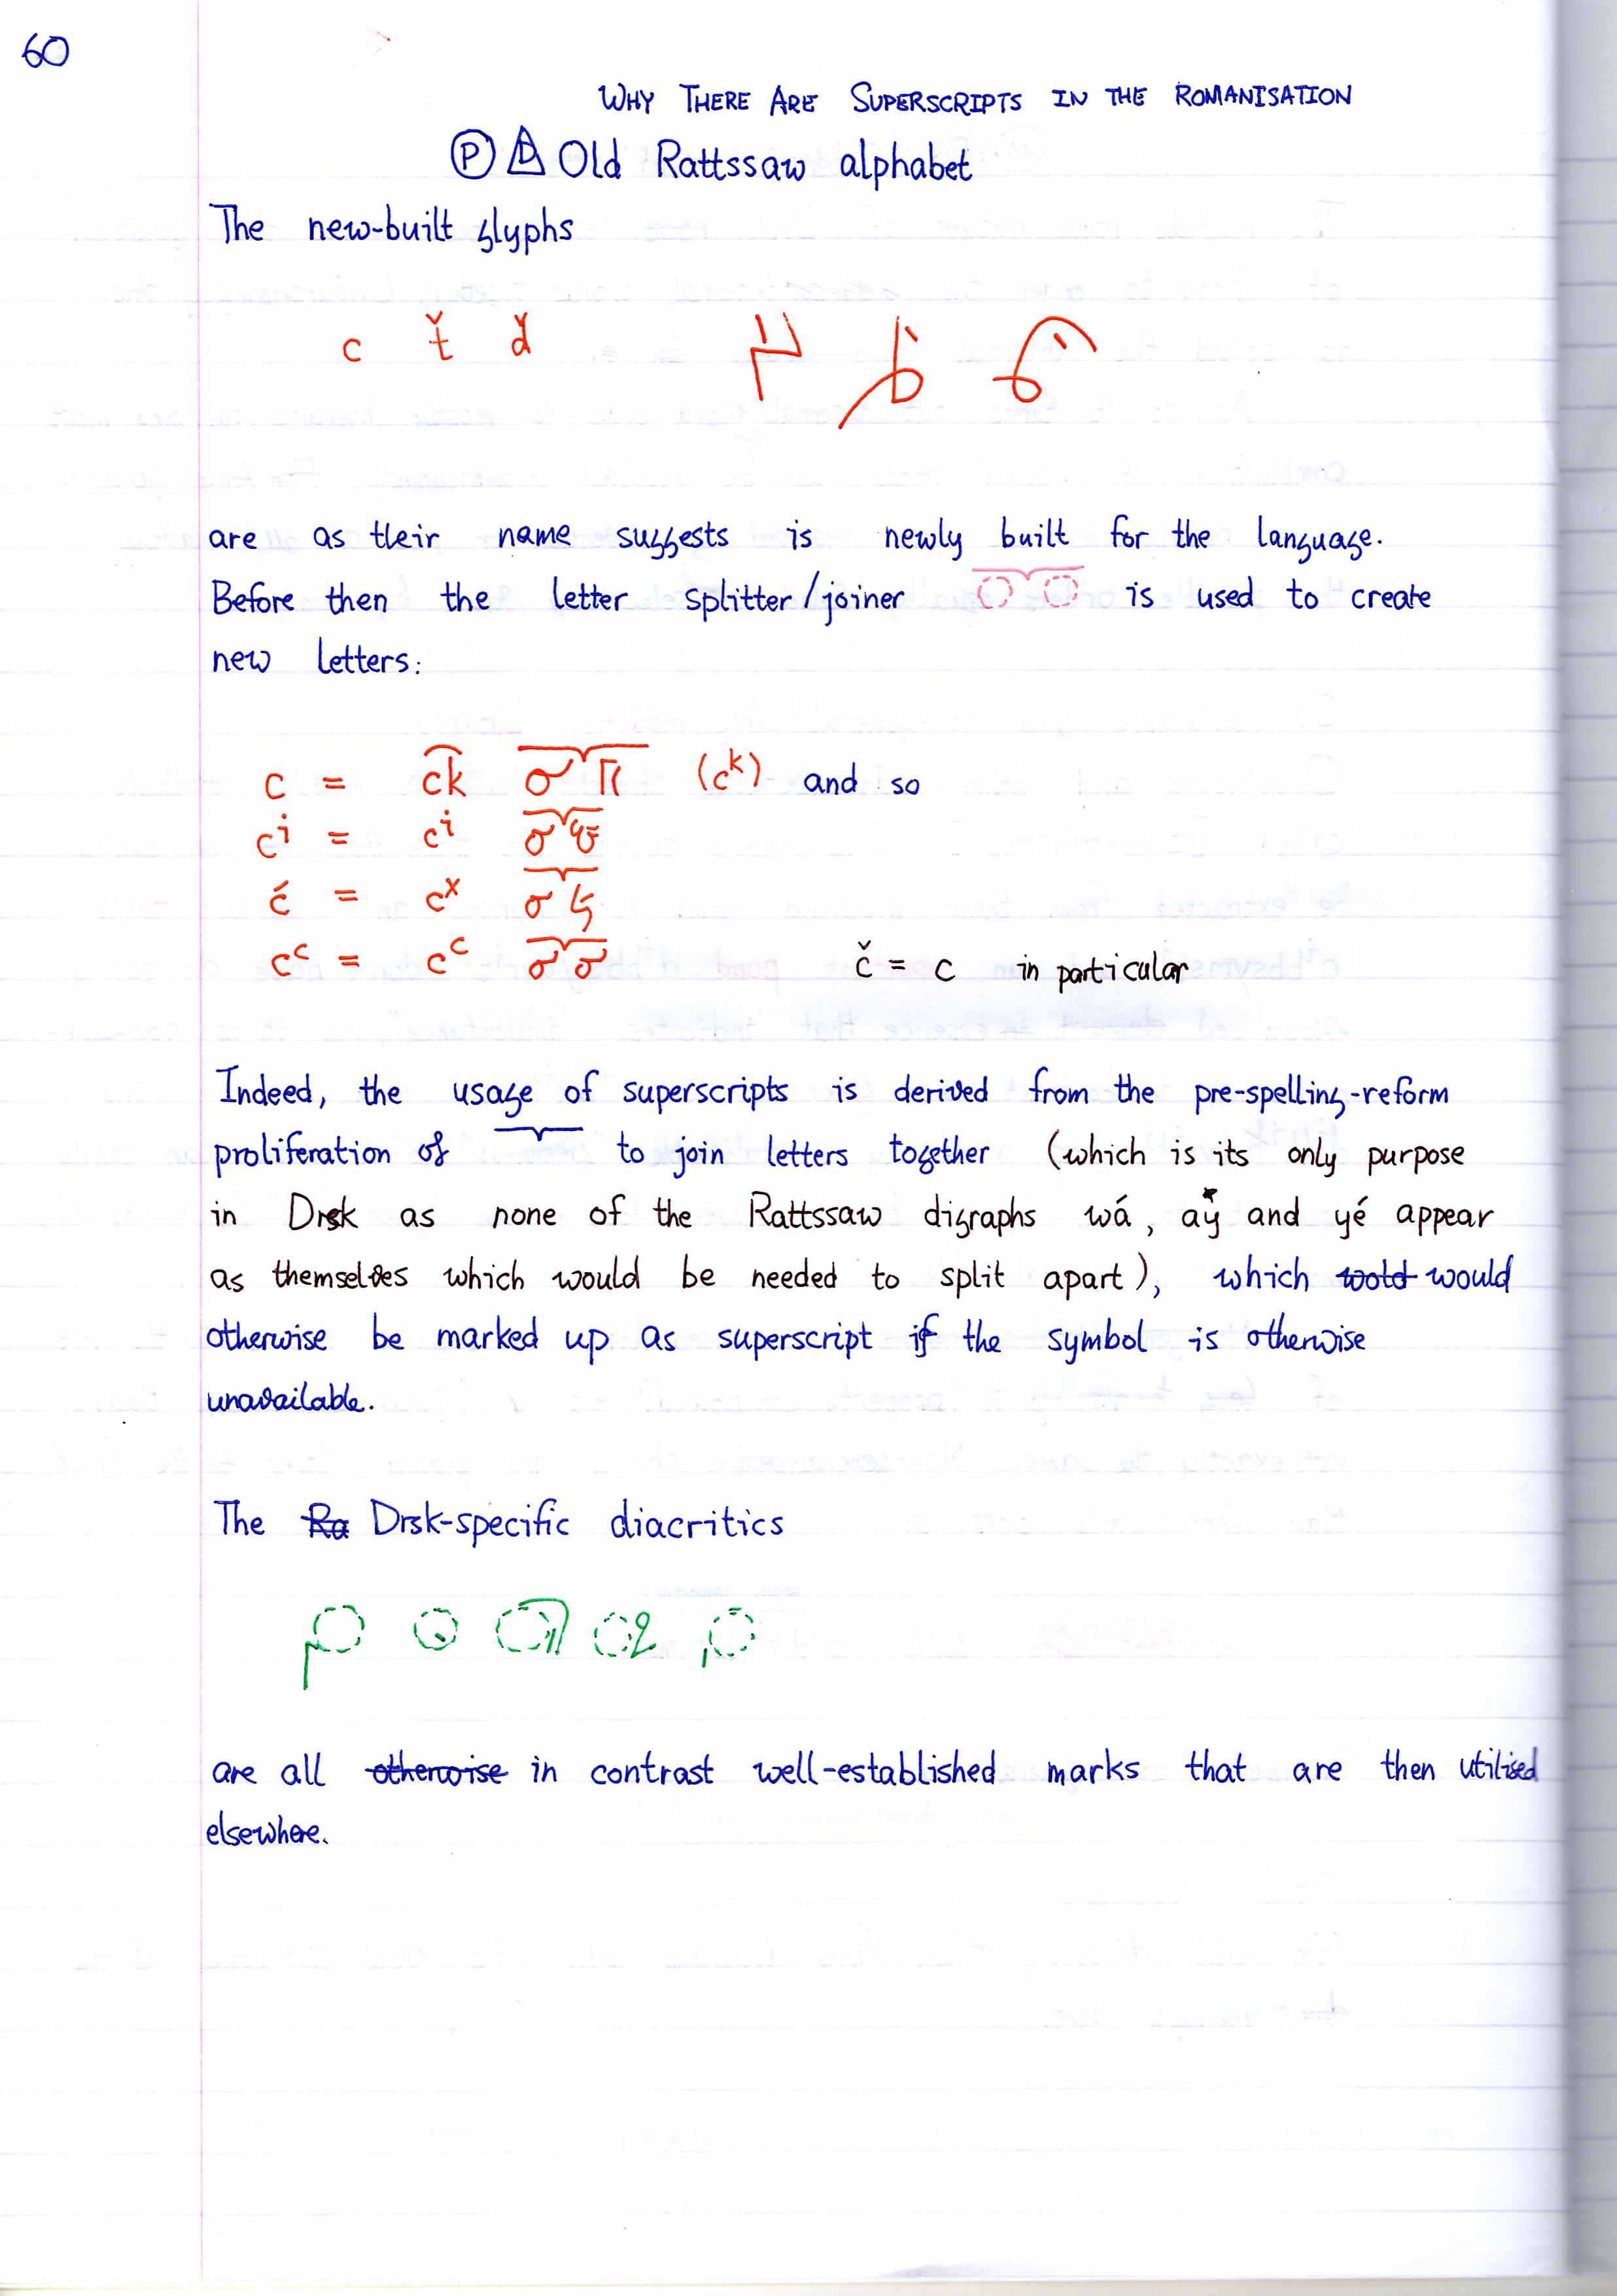 60
WHY THERE ARE SUPERSCRIPTS IN THE ROMANISATION
Ⓟ Old Rattssaw alphabet
The new-built glyphs
c ť ď
are as their name suggests is newly built for the language.
Before then the letter splitter/joiner is used to create
new letters:
c = c͡k (cᵏ) and so
cⁱ = cⁱ
ć = cˣ
cᶜ = cᶜ č = c in particular
Indeed, the usage of superscripts is derived from the pre-spelling-reform
proliferation of to join letters together (which is its only purpose
in Drsk as none of the Rattssaw digraphs wá, aý and yé appear
as themselves which would be needed to split apart), which wold would
otherwise be marked up as superscript if the symbol is otherwise
unavailable.
The Ra Drsk-specific diacritics
are all otherwise in contrast well-established marks that are then utilised
elsewhere.